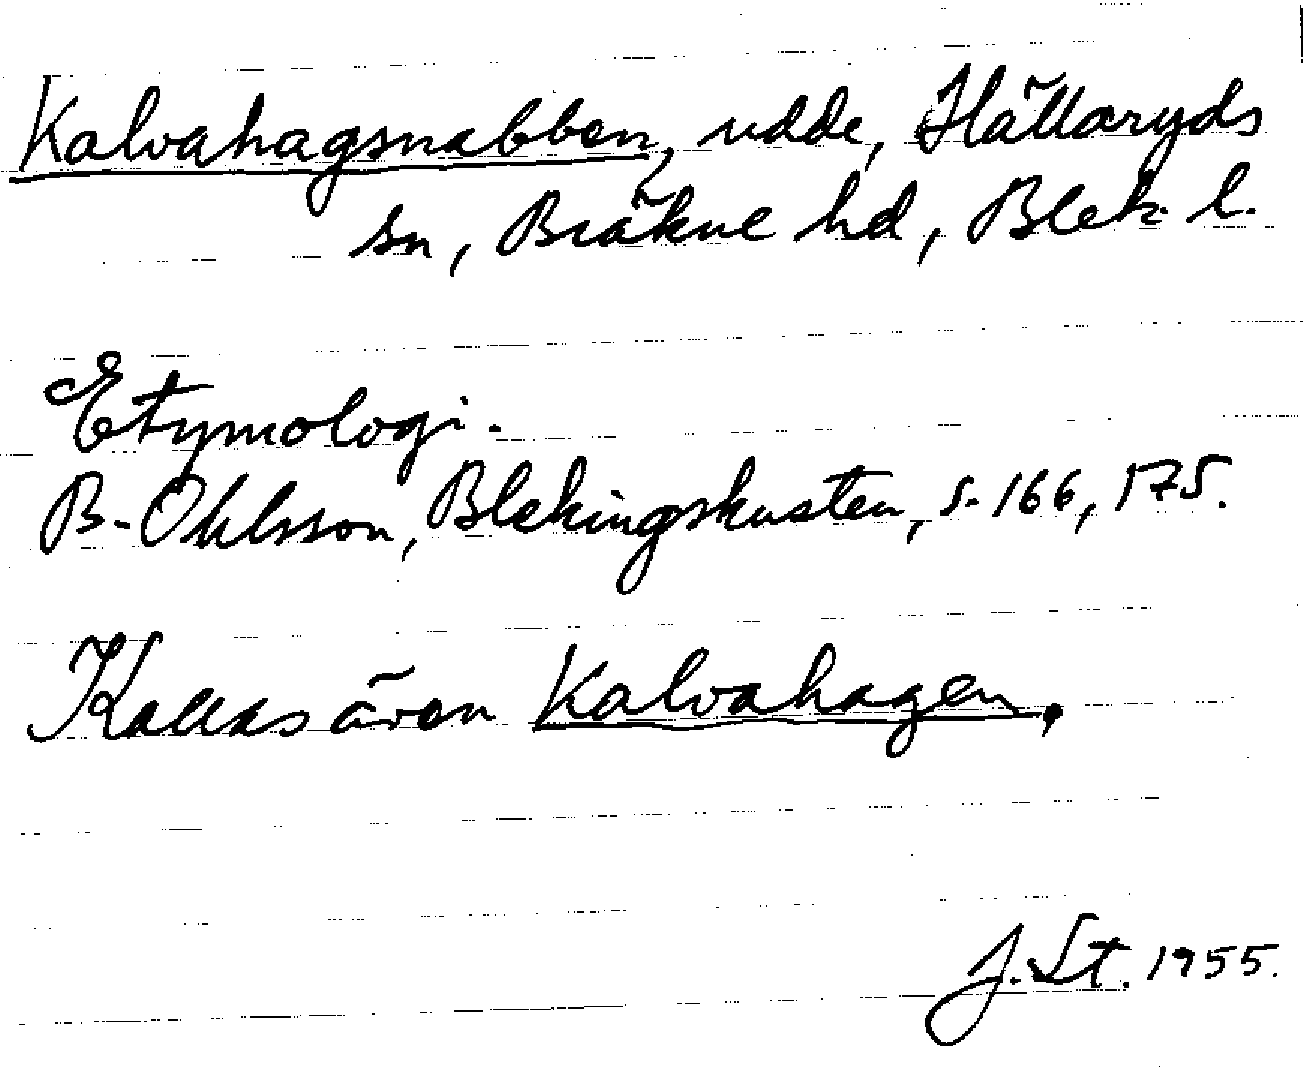 Kalvahagsnabben, udde, Hällaryds
sn, Bräkne hd, Blek. l.
Etymologi.
B. Ohlsson, Blekingskusten, s. 166, 175.
Kallas även Kalvahagen.
J. St. 1955.